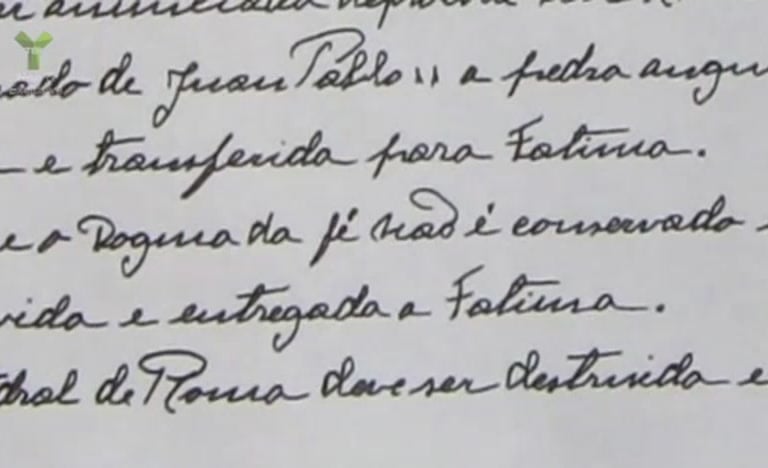 nado de Juan Pablo II a pedra angu
e transferida para Fatima.
e o Dogma da fé não é conservado
vida e entregada a Fatima.
dral de Roma deve ser destruida e